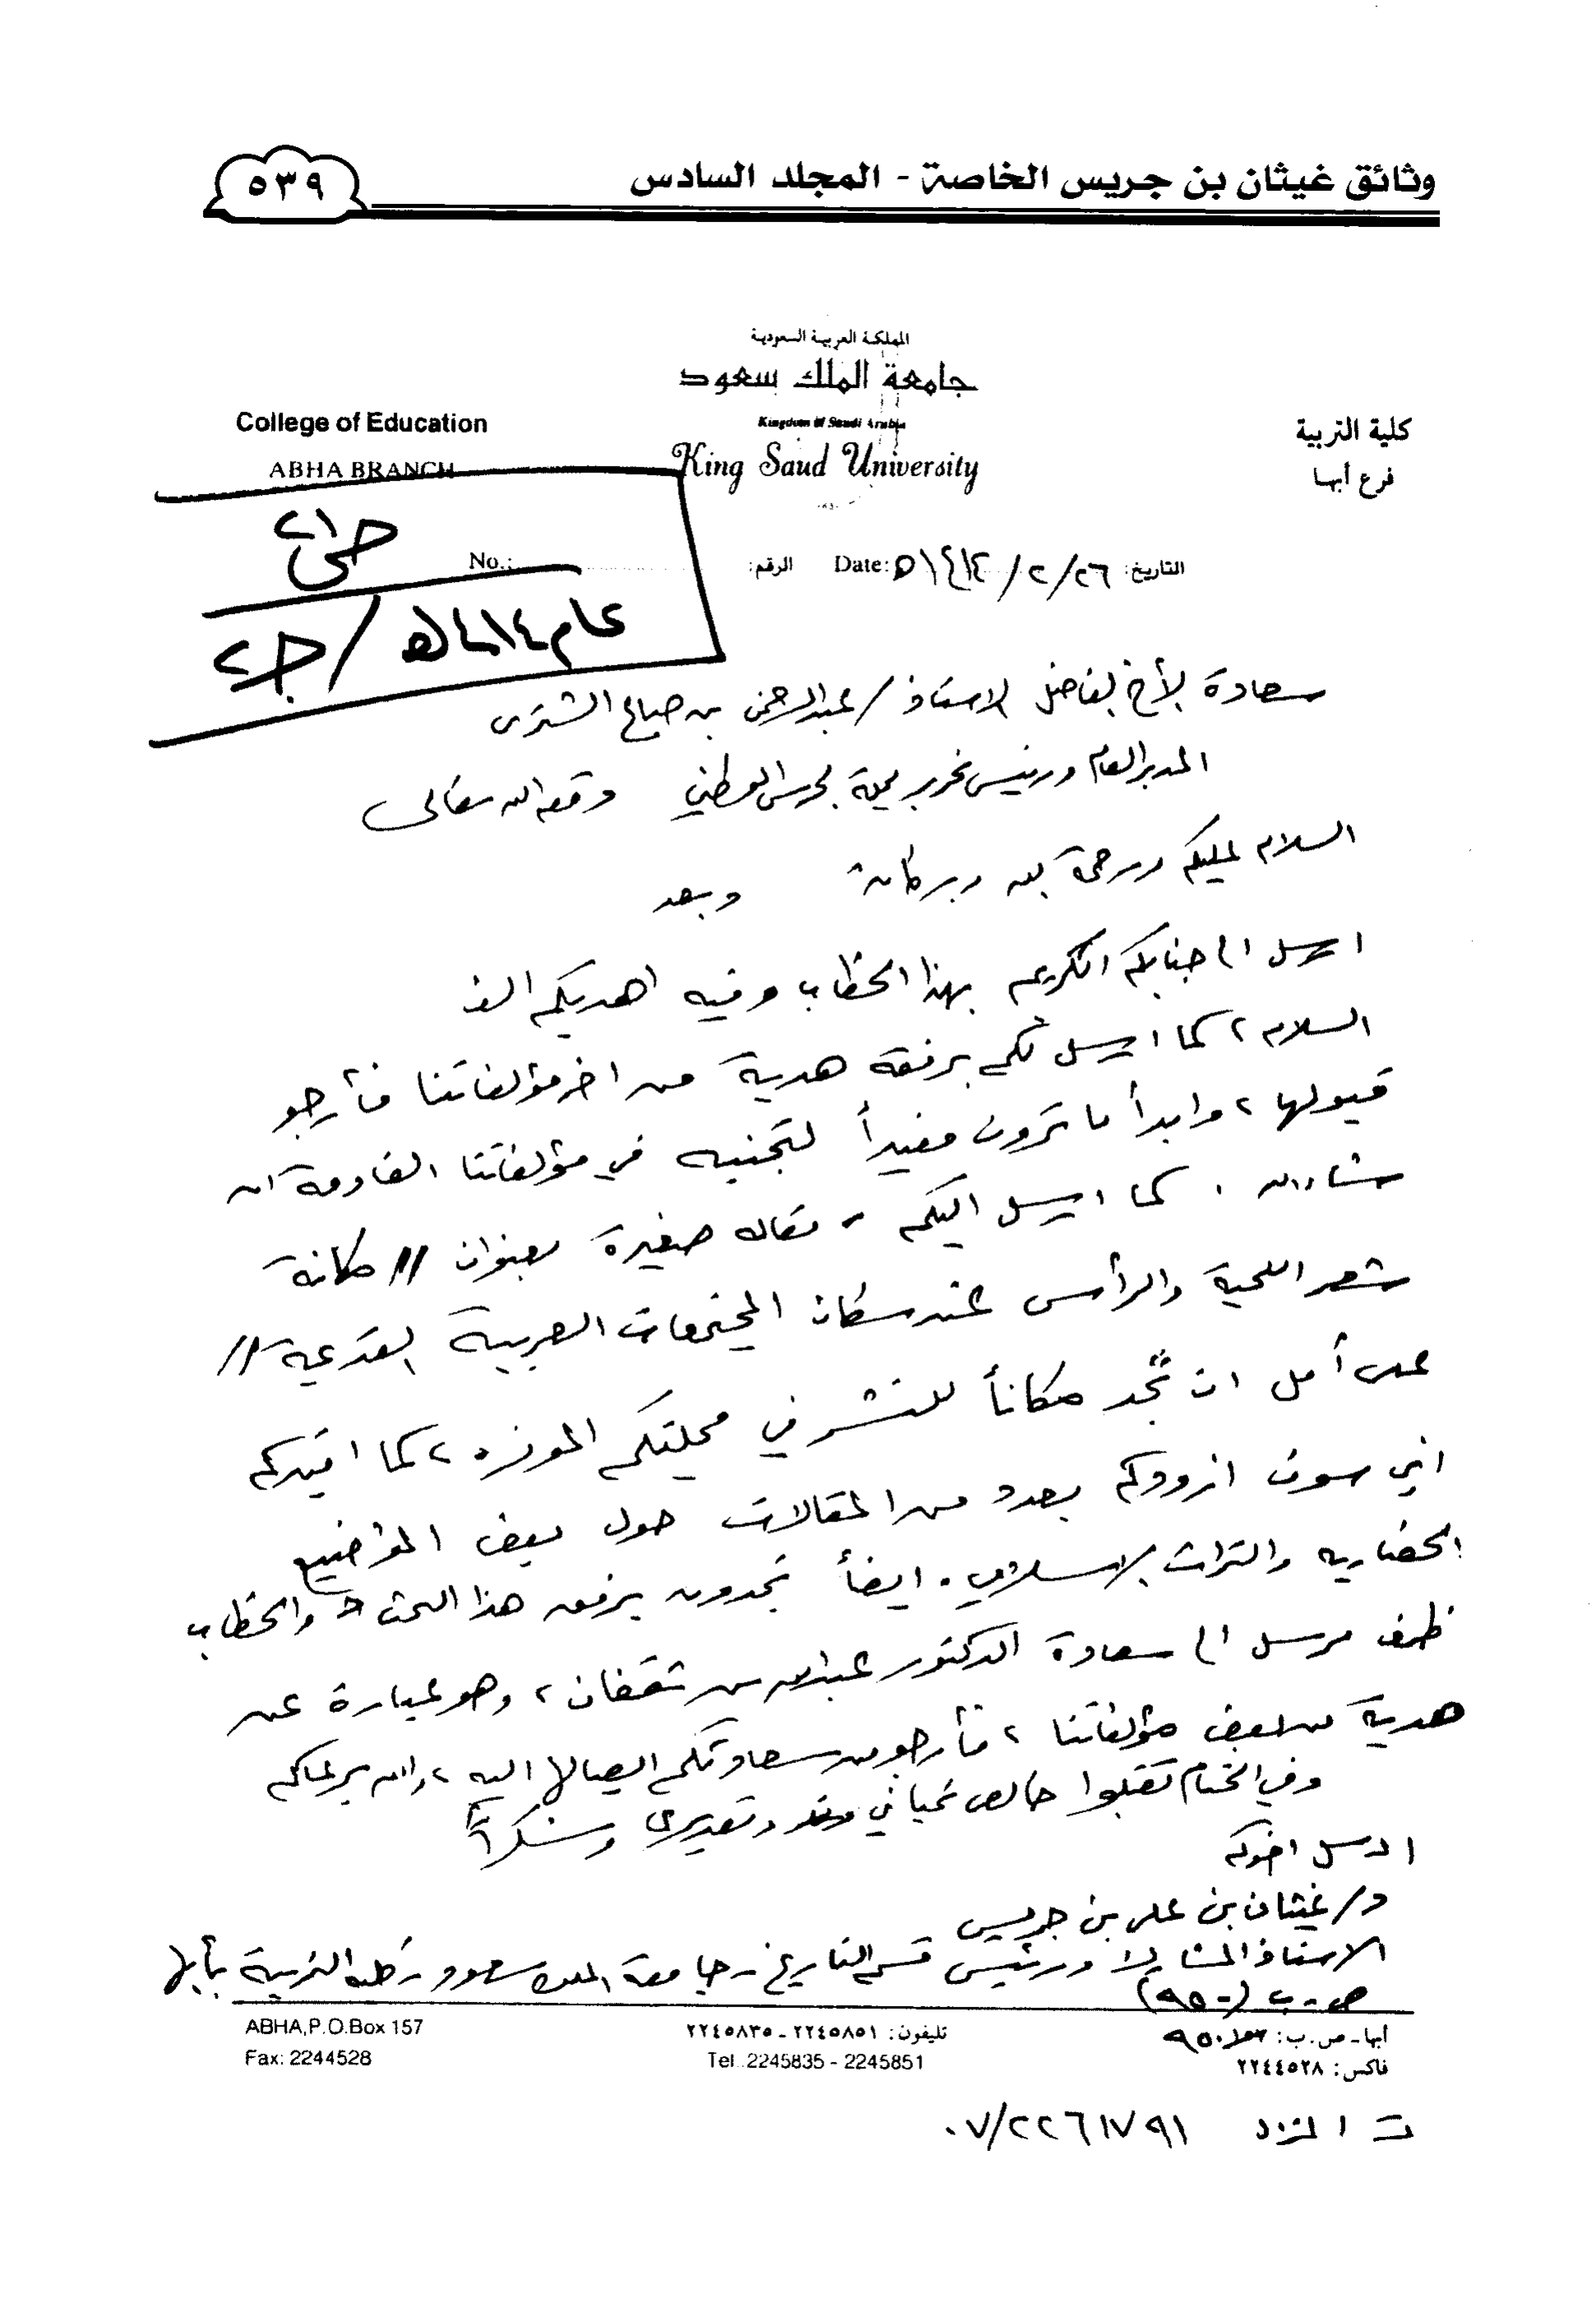 وثائق غيثان بن جريس الخاصة - المجلد السادس
٥٣٩
المملكة العربية السعودية
جامعة الملك سعود
Kingdom of Saudi Arabia
King Saud University
كلية التربية
فرع أبها
College of Education
ABHA BRANCH
التاريخ: ٢٦/ ٢/ ١٤١٤ه Date:
الرقم: No.:
عام ١٤١٤ه / ج٢
سعادة الأخ الفاضل الاستاذ / عبدالرحمن بن صباع الشثري
المدير العام ورئيس تحرير مجلة الحرس الوطني وفقه الله تعالى
السلام عليكم ورحمة الله وبركاته وبعد
ارسل الى جنابكم الكريم بهذا الخطاب وفيه اهديكم الف
السلام، كما ارسل لكم برفقة هدية من اخر مؤلفاتنا فأرجو
قبولها، وابدأ ما ترون مفيداً لتجنبه في مؤلفاتنا القادمة ان
شاء الله . كما ارسل اليكم مقاله صغيرة بعنوان // مكانة
شعر اللحية والرأس عند سكان المجتمعات العربية القديمة //
على أمل ان تجد مكاناً للنشر في مجلتكم الموقره، كما افيدكم
اني سوف ازودكم بعدد من المقالات حول بعض المواضيع
الحضاريه والتراث الاسلامي . ايضاً تجدون برفق هذا البحث والخطاب
ظرف مرسل الى سعادة الدكتور عبدالله بن ثقفان، وهو عبارة عن
هدية من بعض مؤلفاتنا، فأرجو من سعادتكم ايصالها اليه، والله يرعاكم
وفي الختام تقبلوا خالص تحياتي وتقديري وشكراً
المرسل اخوكم
د/ غيثان بن علي بن جريس
الاستاذ المشارك ورئيس قسم التاريخ - جامعة الملك سعود - كلية التربية بأبها
ص.ب (٩٥٠)
ABHA,P.O.Box 157
Fax: 2244528
تليفون: ٢٢٤٥٨٥١ - ٢٢٤٥٨٣٥
Tel. 2245835 - 2245851
أبها - ص.ب: ٩٥٠
فاكس: ٢٢٤٤٥٢٨
ت المنزل ٠٧/٢٢٦١٧٩١